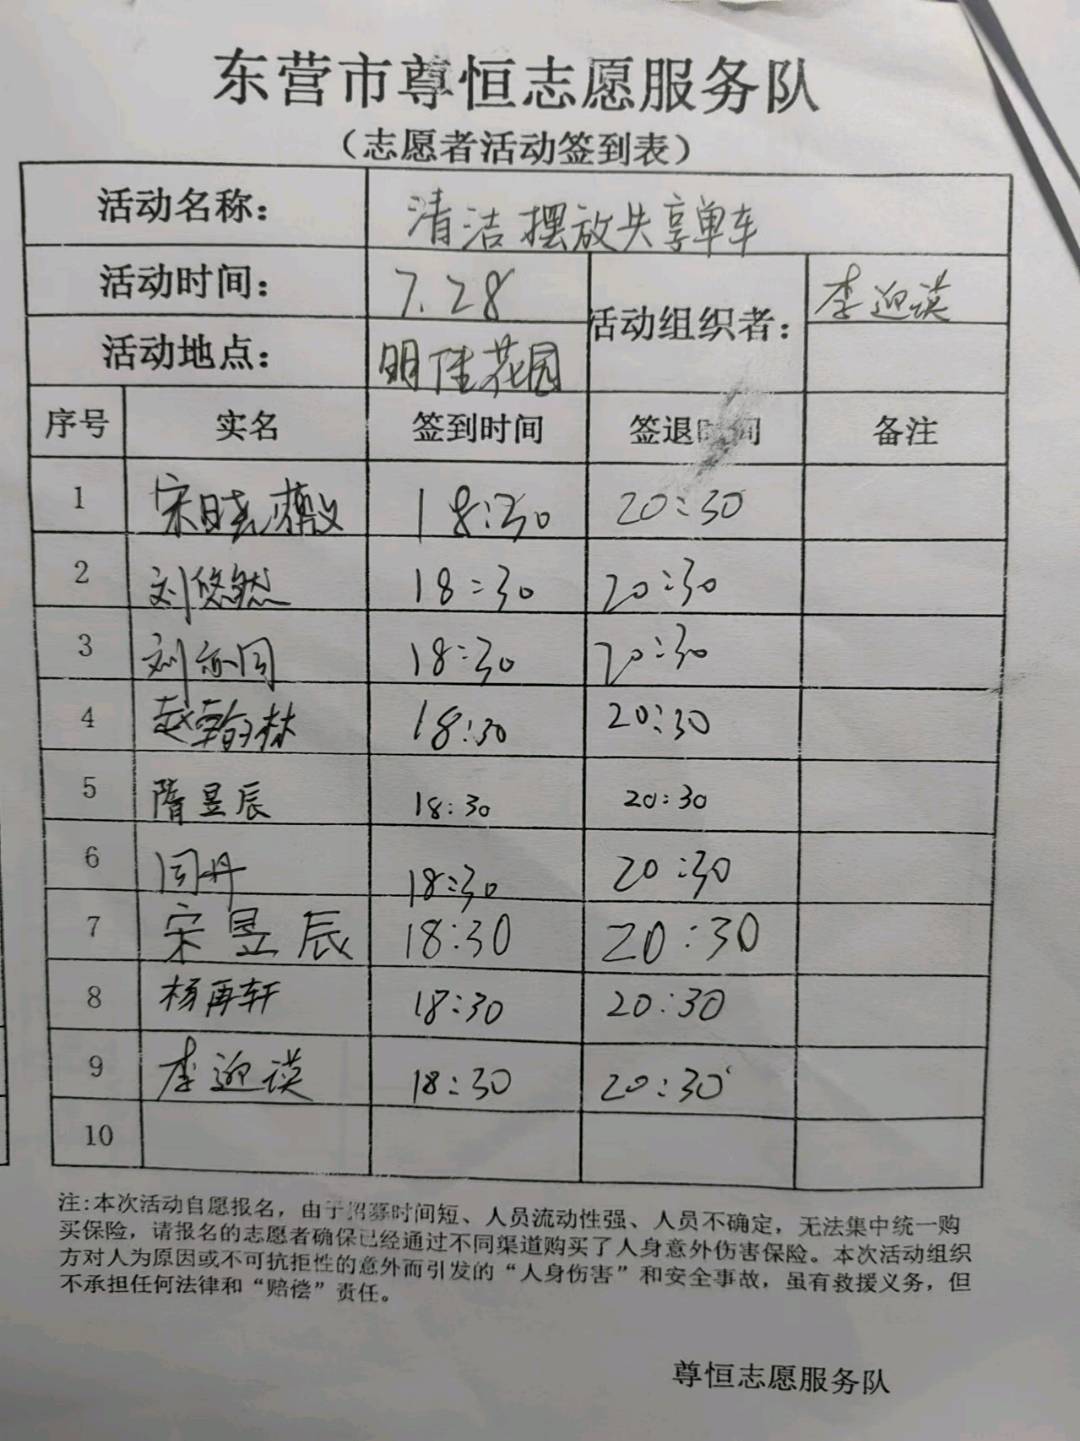 东营市尊恒志愿服务队
（志愿者活动签到表）
活动名称： 清洁摆放共享单车
活动时间： 7.28 活动组织者： 李迎谟
活动地点： 明佳花园
序号 实名 签到时间 签退时间 备注
1 宋晓 18:30 20:30
2 刘悠然 18:30 20:30
3 刘亦同 18:30 20:30
4 赵翰林 18:30 20:30
5 隋昱辰 18:30 20:30
6 闫丹 18:30 20:30
7 宋昱辰 18:30 20:30
8 杨再轩 18:30 20:30
9 李迎谟 18:30 20:30
10
注:本次活动自愿报名，由于招募时间短、人员流动性强、人员不确定，无法集中统一购
买保险，请报名的志愿者确保已经通过不同渠道购买了人身意外伤害保险。本次活动组织
方对人为原因或不可抗拒性的意外而引发的“人身伤害”和安全事故，虽有救援义务，但
不承担任何法律和“赔偿”责任。
尊恒志愿服务队